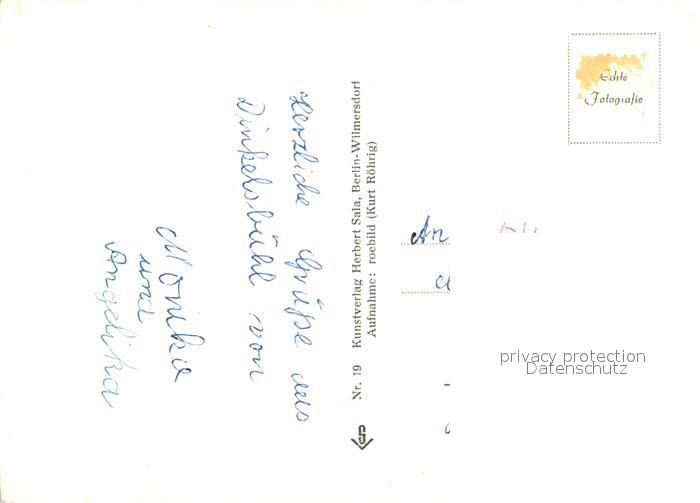 Herzliche Grüße aus
Dinkelsbühl von
Monika
und
Angelika
Nr. 19 Kunstverlag Herbert Sala, Berlin-Wilmersdorf
Aufnahme: roebild (Kurt Röhrig)
Echte
Fotografie
An
privacy protection
Datenschutz